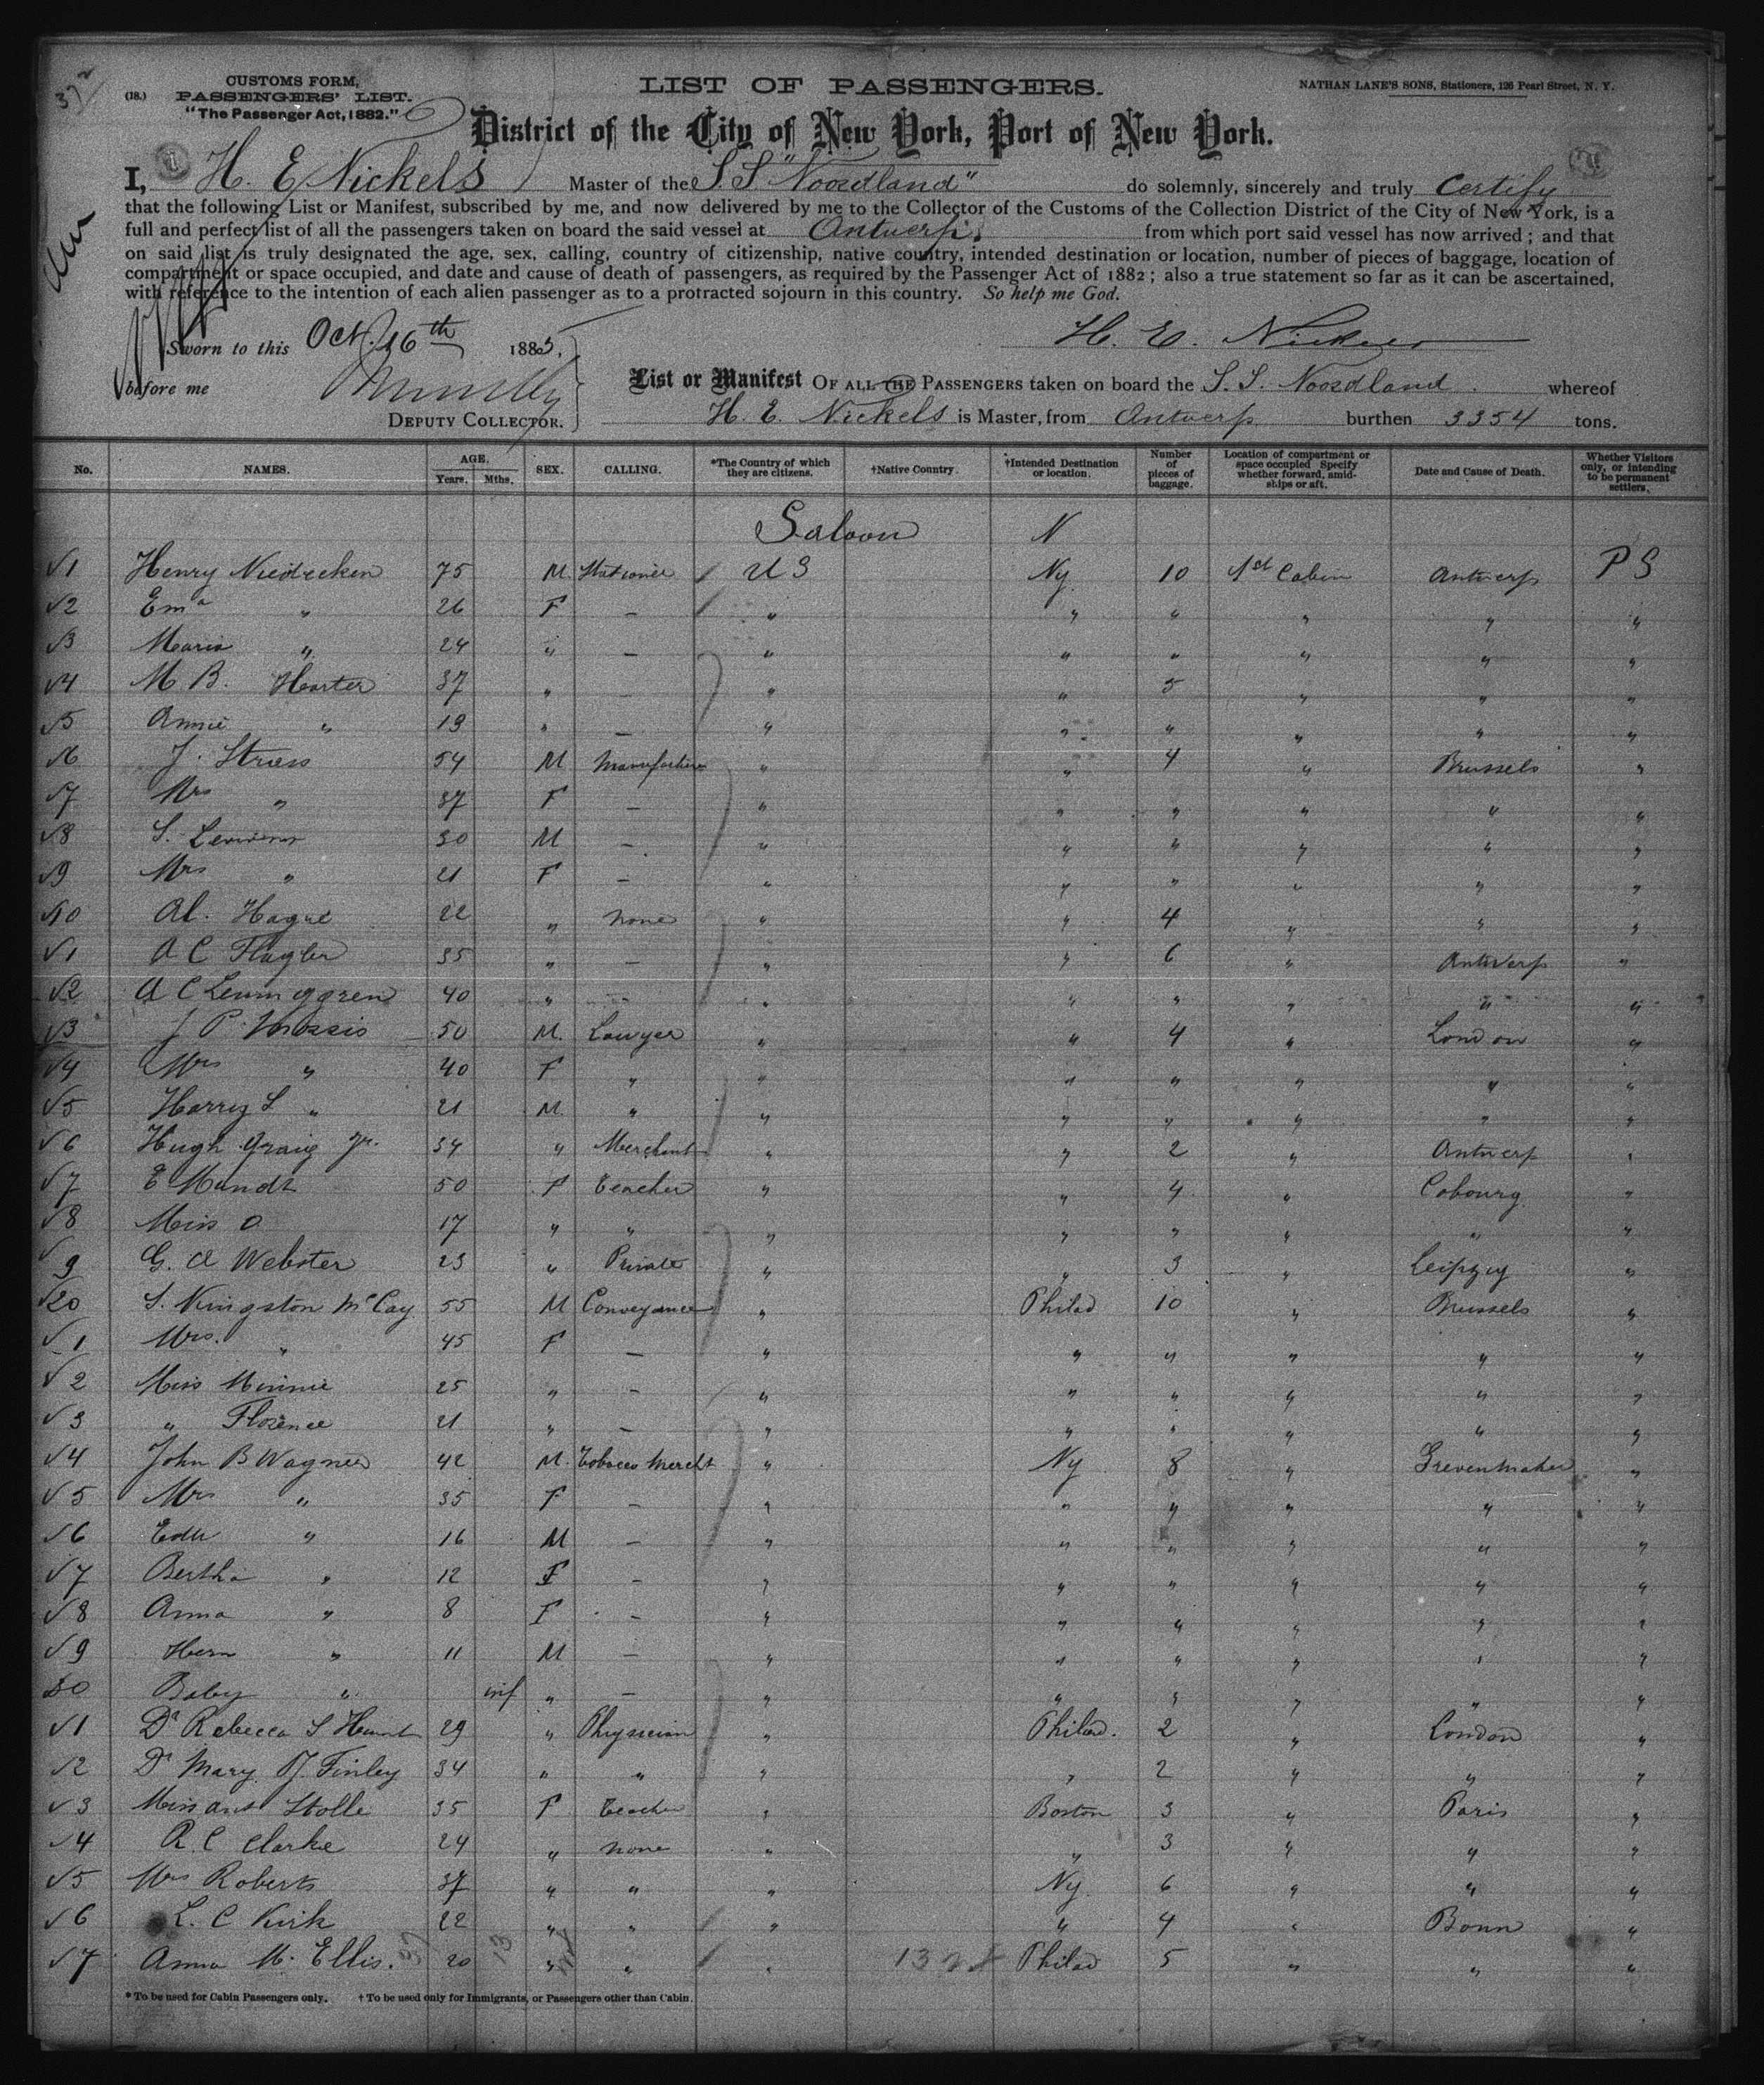 CUSTOMS FORM,
(18.) PASSENGERS' LIST.
"The Passenger Act, 1882."
LIST OF PASSENGERS.
NATHAN LANE'S SONS, Stationers, 126 Pearl Street, N. Y.
District of the City of New York, Port of New York.
I, H. E Nickels Master of the S. S "Noordland" do solemnly, sincerely and truly Certify
that the following List or Manifest, subscribed by me, and now delivered by me to the Collector of the Customs of the Collection District of the City of New York, is a
full and perfect list of all the passengers taken on board the said vessel at Antwerp from which port said vessel has now arrived; and that
on said list is truly designated the age, sex, calling, country of citizenship, native country, intended destination or location, number of pieces of baggage, location of
compartment or space occupied, and date and cause of death of passengers, as required by the Passenger Act of 1882; also a true statement so far as it can be ascertained,
with reference to the intention of each alien passenger as to a protracted sojourn in this country. So help me God.
Sworn to this Oct. 16th 1885.
H. E. Nickels
before me
DEPUTY COLLECTOR.
List or Manifest OF ALL THE PASSENGERS taken on board the S. S. Noordland. whereof
H. E. Nickels is Master, from Antwerp burthen 3354 tons.
No. NAMES. AGE. Years. Mths. SEX. CALLING. *The Country of which they are citizens. †Native Country. †Intended Destination or location. Number of pieces of baggage. Location of compartment or space occupied Specify whether forward, amidships or aft. Date and Cause of Death. Whether Visitors only, or intending to be permanent settlers.
Saloon N
1 Henry Niedecken 75 M. Stationer U S Ny. 10 1st Cabin Antwerp P S
2 Ema " 26 F — " " " " " "
3 Maria " 24 " — " " " " " "
4 M B. Harter 37 " — " " 5 " " "
5 Annie " 19 " — " " " " " "
6 J. Stress 54 M Manufacturer " " 4 " Brussels "
7 Mrs " 37 F — " " " " " "
8 S. 30 M — " " " " " "
9 Mrs " 21 F — " " " " " "
10 Al. Hague 22 " none " " 4 " " "
1 A C Flagler 35 " — " " 6 " Antwerp "
2 A C 40 " — " " " " " "
3 J P. Morris 50 M. Lawyer " " 4 " London "
4 Mrs " 40 F " " " " " " "
5 Harry L " 21 M. " " " " " " "
6 Hugh Graig Jr. 34 " Merchant " " 2 " Antwerp "
7 E Mundt 50 F Teacher " " 4 " Cobourg "
8 Miss O 17 " " " " " " " "
9 G. A Webster 23 " Private " " 3 " Leipzig "
20 S. Kingston McCay 55 M Conveyancer " Philad 10 " Brussels "
1 Mrs. " 45 F — " " " " " "
2 Miss Minnie 25 " — " " " " " "
3 " Florence 21 " — " " " " " "
4 John B Wagner 42 M. Tobacco Mercht " Ny 8 " Grevenmaker "
5 Mrs " 35 F — " " " " " "
6 Edw " 16 M — " " " " " "
7 Bertha " 12 F — " " " " " "
8 Anna " 8 F — " " " " " "
9 Herm " 11 M — " " " " " "
30 Baby " inf " — " " " " " "
1 Dr Rebecca S Hunt 29 " Physician " Philad. 2 " London "
2 Dr Mary J. Finley 34 " " " " 2 " " "
3 Miss Stolle 35 F Teacher " Boston 3 " Paris "
4 R. C Clarke 24 " none " " 3 " " "
5 Mrs Roberts 37 " " " Ny. 6 " " "
6 L. C Kirk 22 " " " " 4 " Bonn "
7 Anna M. Ellis. 20 " " " Philad 5 " " "
* To be used for Cabin Passengers only. † To be used only for Immigrants, or Passengers other than Cabin.